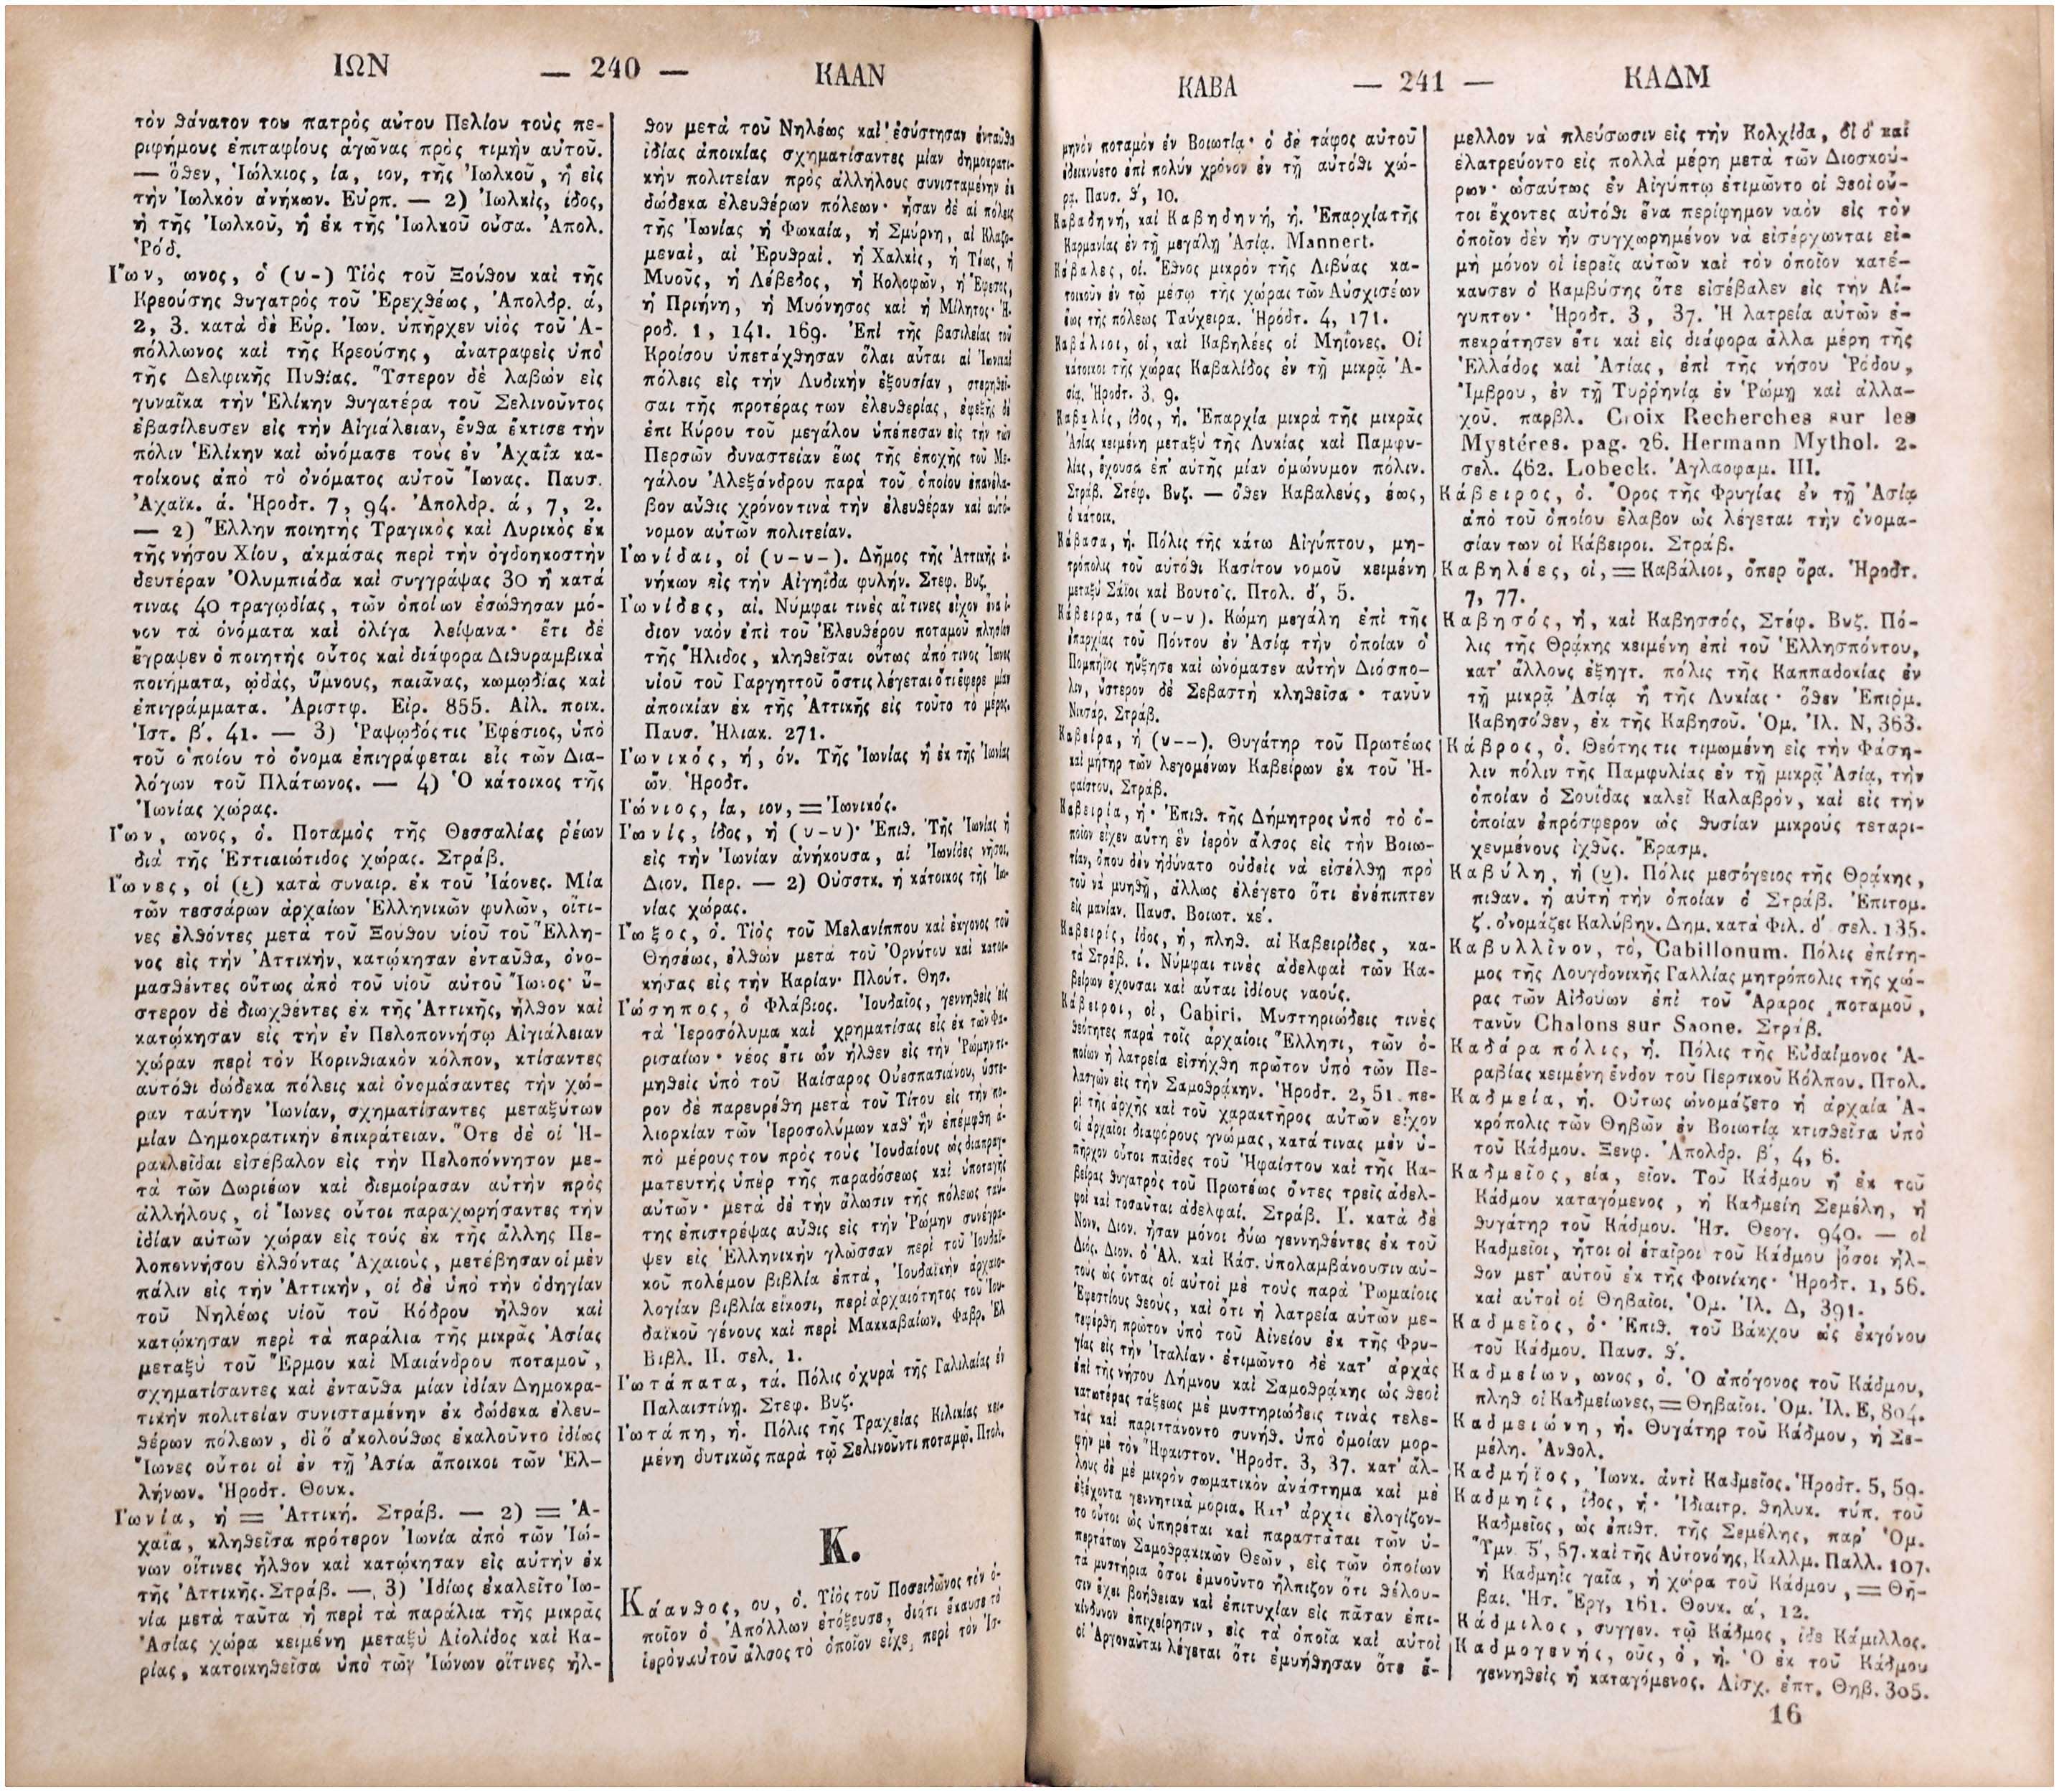 ΙΩΝ — 240 — ΚΑΑΝ
τὸν θάνατον του πατρὸς αὐτου Πελίου τοὺς πε-
ριφήμους ἐπιταφίους ἀγῶνας πρὸς τιμὴν αὐτοῦ.
— ὅθεν, Ἰώλκιος, ία, ιον, τῆς Ἰωλκοῦ, ἢ εἰς
τὴν Ἰωλκὸν ἀνήκων. Εὐρπ. — 2) Ἰωλκὶς, ίδος,
ἡ τῆς Ἰωλκοῦ, ἢ ἐκ τῆς Ἰωλκοῦ οὖσα. Ἀπολ.
Ῥόδ.
Ἴων, ωνος, ὁ (υ-) Υἱὸς τοῦ Ξούθου καὶ τῆς
Κρεούσης θυγατρὸς τοῦ Ἐρεχθέως, Ἀπολδρ. ά,
2, 3. κατὰ δὲ Εὐρ. Ἰων. ὑπῆρχεν υἱὸς τοῦ Ἀ-
πόλλωνος καὶ τῆς Κρεούσης, ἀνατραφεὶς ὑπὸ
τῆς Δελφικῆς Πυθίας. Ὕστερον δὲ λαβὼν εἰς
γυναῖκα τὴν Ἑλίκην θυγατέρα τοῦ Σελινοῦντος
ἐβασίλευσεν εἰς τὴν Αἰγιάλειαν, ἔνθα ἔκτισε τὴν
πόλιν Ἑλίκην καὶ ὠνόμασε τοὺς ἐν Ἀχαΐα κα-
τοίκους ἀπὸ τὸ ὀνόματος αὐτοῦ Ἴωνας. Παυσ.
Ἀχαϊκ. ά. Ἡροδτ. 7, 94. Ἀπολδρ. ά, 7, 2.
— 2) Ἕλλην ποιητὴς Τραγικὸς καὶ Λυρικὸς ἐκ
τῆς νήσου Χίου, ἀκμάσας περὶ τὴν ὀγδοηκοστὴν
δευτέραν Ὀλυμπιάδα καὶ συγγράψας 30 ἢ κατά
τινας 40 τραγῳδίας, τῶν ὁποίων ἐσώθησαν μό-
νον τὰ ὀνόματα καὶ ὀλίγα λείψανα· ἔτι δὲ
ἔγραψεν ὁ ποιητὴς οὗτος καὶ διάφορα Διθυραμβικὰ
ποιήματα, ᾠδὰς, ὕμνους, παιᾶνας, κωμῳδίας καὶ
ἐπιγράμματα. Ἀριστφ. Εἰρ. 855. Αἰλ. ποικ.
Ἱστ. β'. 41. — 3) Ῥαψῳδός τις Ἐφέσιος, ὑπὸ
τοῦ ὁποίου τὸ ὄνομα ἐπιγράφεται εἰς τῶν Δια-
λόγων τοῦ Πλάτωνος. — 4) Ὁ κάτοικος τῆς
Ἰωνίας χώρας.
Ἴων, ωνος, ὁ. Ποταμὸς τῆς Θεσσαλίας ῥέων
διὰ τῆς Ἑστιαιώτιδος χώρας. Στράβ.
Ἴωνες, οἱ (ι) κατὰ συναιρ. ἐκ τοῦ Ἰάονες. Μία
τῶν τεσσάρων ἀρχαίων Ἑλληνικῶν φυλῶν, οἵτι-
νες ἐλθόντες μετὰ τοῦ Ξούθου υἱοῦ τοῦ Ἕλλη-
νος εἰς τὴν Ἀττικὴν, κατῴκησαν ἐνταῦθα, ὀνο-
μασθέντες οὕτως ἀπὸ τοῦ υἱοῦ αὐτοῦ Ἴωνος· ὕ-
στερον δὲ διωχθέντες ἐκ τῆς Ἀττικῆς, ἦλθον καὶ
κατῴκησαν εἰς τὴν ἐν Πελοποννήσῳ Αἰγιάλειαν
χώραν περὶ τὸν Κορινθιακὸν κόλπον, κτίσαντες
αὐτόθι δώδεκα πόλεις καὶ ὀνομάσαντες τὴν χώ-
ραν ταύτην Ἰωνίαν, σχηματίσαντες μεταξύτων
μίαν Δημοκρατικὴν ἐπικράτειαν. Ὅτε δὲ οἱ Ἡ-
ρακλεῖδαι εἰσέβαλον εἰς τὴν Πελοπόννησον με-
τὰ τῶν Δωριέων καὶ διεμοίρασαν αὐτὴν πρὸς
ἀλλήλους, οἱ Ἴωνες οὗτοι παραχωρήσαντες τὴν
ἰδίαν αὐτῶν χώραν εἰς τοὺς ἐκ τῆς ἄλλης Πε-
λοποννήσου ἐλθόντας Ἀχαιοὺς, μετέβησαν οἱ μὲν
πάλιν εἰς τὴν Ἀττικὴν, οἱ δὲ ὑπὸ τὴν ὁδηγίαν
τοῦ Νηλέως υἱοῦ τοῦ Κόδρου ἦλθον καὶ
κατῴκησαν περὶ τὰ παράλια τῆς μικρᾶς Ἀσίας
μεταξὺ τοῦ Ἕρμου καὶ Μαιάνδρου ποταμοῦ,
σχηματίσαντες καὶ ἐνταῦθα μίαν ἰδίαν Δημοκρα-
τικὴν πολιτείαν συνισταμένην ἐκ δώδεκα ἐλευ-
θέρων πόλεων, δι' ὃ ἀκολούθως ἐκαλοῦντο ἰδίως
Ἴωνες οὗτοι οἱ ἐν τῇ Ἀσίᾳ ἄποικοι τῶν Ἑλ-
λήνων. Ἡροδτ. Θουκ.
Ἰωνία, ἡ = Ἀττική. Στράβ. — 2) = Ἀ-
χαΐα, κληθεῖσα πρότερον Ἰωνία ἀπὸ τῶν Ἰώ-
νων οἵτινες ἦλθον καὶ κατῴκησαν εἰς αὐτὴν ἐκ
τῆς Ἀττικῆς. Στράβ. — 3) Ἰδίως ἐκαλεῖτο Ἰω-
νία μετὰ ταῦτα ἡ περὶ τὰ παράλια τῆς μικρᾶς
Ἀσίας χώρα κειμένη μεταξὺ Αἰολίδος καὶ Κα-
ρίας, κατοικηθεῖσα ὑπὸ τῶν Ἰώνων οἵτινες ἦλ-
θον μετὰ τοῦ Νηλέως καὶ ἐσύστησαν ἐνταῦθα
ἰδίας ἀποικίας σχηματίσαντες μίαν δημοκρατι-
κὴν πολιτείαν πρὸς ἀλλήλους συνισταμένην ἐκ
δώδεκα ἐλευθέρων πόλεων· ἦσαν δὲ αἱ πόλεις
τῆς Ἰωνίας ἡ Φωκαία, ἡ Σμύρνη, αἱ Κλαζο-
μεναὶ, αἱ Ἐρυθραὶ. ἡ Χαλκὶς, ἡ Τέως, ἡ
Μυοῦς, ἡ Λέβεδος, ἡ Κολοφὼν, ἡ Ἔφεσος,
ἡ Πριήνη, ἡ Μυόνησος καὶ ἡ Μίλητος· Ἡ-
ροδ. 1, 141. 169. Ἐπὶ τῆς βασιλείας τοῦ
Κροίσου ὑπετάχθησαν ὅλαι αὗται αἱ Ἰωνικαὶ
πόλεις εἰς τὴν Λυδικὴν ἐξουσίαν, στερηθεῖ-
σαι τῆς προτέρας των ἐλευθερίας, ἐφεξῆς δὲ
ἐπὶ Κύρου τοῦ μεγάλου ὑπέπεσαν εἰς τὴν τῶν
Περσῶν δυναστείαν ἕως τῆς ἐποχῆς τοῦ Με-
γάλου Ἀλεξάνδρου παρὰ τοῦ ὁποίου ἐπανέλα-
βον αὖθις χρόνον τινὰ τὴν ἐλευθέραν καὶ αὐτό-
νομον αὐτῶν πολιτείαν.
Ἰωνίδαι, οἱ (υ-υ-). Δῆμος τῆς Ἀττικῆς ἀ-
νήκων εἰς τὴν Αἰγηΐδα φυλήν. Στεφ. Βυζ.
Ἰωνίδες, αἱ. Νύμφαι τινὲς αἵτινες εἶχον ἕνα ἴ-
διον ναὸν ἐπὶ τοῦ Ἐλευθέρου ποταμοῦ πλησίον
τῆς Ἤλιδος, κληθεῖσαι οὕτως ἀπό τινος Ἴωνος
υἱοῦ τοῦ Γαργηττοῦ ὅστις λέγεται ὅτι ἔφερε μίαν
ἀποικίαν ἐκ τῆς Ἀττικῆς εἰς τοῦτο τὸ μέρος.
Παυσ. Ἠλιακ. 271.
Ἰωνικός, ή, όν. Τῆς Ἰωνίας ἢ ἐκ τῆς Ἰωνίας
ὤν. Ἡροδτ.
Ἰώνιος, ία, ιον, = Ἰωνικός.
Ἰωνίς, ίδος, ἡ (υ-υ)· Ἐπιθ. Τῆς Ἰωνίας ἢ
εἰς τὴν Ἰωνίαν ἀνήκουσα, αἱ Ἰωνίδες νῆσοι,
Διον. Περ. — 2) Οὐσστκ. ἡ κάτοικος τῆς Ἰω-
νίας χώρας.
Ἴωξος, ὁ. Υἱὸς τοῦ Μελανίππου καὶ ἔκγονος τοῦ
Θησέως, ἐλθὼν μετὰ τοῦ Ὀρνύτου καὶ κατοι-
κήσας εἰς τὴν Καρίαν· Πλούτ. Θησ.
Ἰώσηπος, ὁ Φλάβιος. Ἰουδαῖος, γεννηθεὶς εἰς
τὰ Ἱεροσόλυμα καὶ χρηματίσας εἷς ἐκ τῶν Φα-
ρισαίων· νέος ἔτι ὢν ἦλθεν εἰς τὴν Ῥώμην τι-
μηθεὶς ὑπὸ τοῦ Καίσαρος Οὐεσπασιάνου, ὕστε-
ρον δὲ παρευρέθη μετὰ τοῦ Τίτου εἰς τὴν πο-
λιορκίαν τῶν Ἱεροσολύμων καθ' ἣν ἐπέμφθη ἀ-
πὸ μέρους του πρὸς τοὺς Ἰουδαίους ὡς διαπραγ-
ματευτὴς ὑπὲρ τῆς παραδόσεως καὶ ὑποταγῆς
αὐτῶν· μετὰ δὲ τὴν ἅλωσιν τῆς πόλεως ταύ-
της ἐπιστρέψας αὖθις εἰς τὴν Ῥώμην συνέγρα-
ψεν εἰς Ἑλληνικὴν γλῶσσαν περὶ τοῦ Ἰουδαϊ-
κοῦ πολέμου βιβλία ἑπτὰ, Ἰουδαϊκὴν ἀρχαιο-
λογίαν βιβλία εἴκοσι, περὶ ἀρχαιότητος τοῦ Ἰου-
δαϊκοῦ γένους καὶ περὶ Μακκαβαίων. Φαβρ. Ἑλ
Βιβλ. ΙΙ. σελ. 1.
Ἰωτάπατα, τά. Πόλις ὀχυρὰ τῆς Γαλιλαίας ἐν
Παλαιστίνῃ. Στεφ. Βυζ.
Ἰωτάπη, ἡ. Πόλις τῆς Τραχείας Κιλικίας κει-
μένη δυτικῶς παρὰ τῷ Σελινοῦντι ποταμῷ. Πτολ.
Κ.
Κάανθος, ου, ὁ. Υἱὸς τοῦ Ποσειδῶνος τὸν ὁ-
ποῖον ὁ Ἀπόλλων ἐτόξευσε, διότι ἔκαυσε τὸ
ἱερὸν αὐτοῦ ἄλσος τὸ ὁποῖον εἶχε περὶ τὸν Ἰσ-
ΚΑΒΑ — 241 — ΚΑΔΜ
μηνὸν ποταμὸν ἐν Βοιωτίᾳ· ὁ δὲ τάφος αὐτοῦ
ἐδεικνύετο ἐπὶ πολὺν χρόνον ἐν τῇ αὐτόθι χώ-
ρᾳ. Παυσ. θ', 10.
Καβαδηνή, καὶ Καβηδηνή, ἡ. Ἐπαρχία τῆς
Καρμανίας ἐν τῇ μεγάλῃ Ἀσίᾳ. Mannert.
Κάβαλες, οἱ. Ἔθνος μικρὸν τῆς Λιβύας κα-
τοικοῦν ἐν τῷ μέσῳ τῆς χώρας τῶν Αὐσχισέων
ἕως τῆς πόλεως Ταύχειρα. Ἡρόδτ. 4, 171.
Καβάλιοι, οἱ, καὶ Καβηλέες οἱ Μηΐονες. Οἱ
κάτοικοι τῆς χώρας Καβαλίδος ἐν τῇ μικρᾷ Ἀ-
σίᾳ. Ἡροδτ. 3, 9.
Καβαλίς, ίδος, ἡ. Ἐπαρχία μικρὰ τῆς μικρᾶς
Ἀσίας κειμένη μεταξὺ τῆς Λυκίας καὶ Παμφυ-
λίας, ἔχουσα ἐπ' αὐτῆς μίαν ὁμώνυμον πόλιν.
Στράβ. Στέφ. Βυζ. — ὅθεν Καβαλεύς, έως,
ὁ κάτοικ.
Κάβασα, ἡ. Πόλις τῆς κάτω Αἰγύπτου, μη-
τρόπολις τοῦ αὐτόθι Κασίτου νομοῦ κειμένη
μεταξὺ Σάϊοι καὶ Βουτοῖς. Πτολ. δ', 5.
Κάβειρα, τά (υ-υ). Κώμη μεγάλη ἐπὶ τῆς
ἐπαρχίας τοῦ Πόντου ἐν Ἀσίᾳ τὴν ὁποίαν ὁ
Πομπήϊος ηὔξησε καὶ ὠνόμασεν αὐτὴν Διόσπο-
λιν, ὕστερον δὲ Σεβαστὴ κληθεῖσα· τανῦν
Νικσάρ. Στράβ.
Καβείρα, ἡ (υ--). Θυγάτηρ τοῦ Πρωτέως
καὶ μήτηρ τῶν λεγομένων Καβείρων ἐκ τοῦ Ἡ-
φαίστου. Στράβ.
Καβειρία, ἡ· Ἐπιθ. τῆς Δήμητρος ὑπὸ τὸ ὁ-
ποῖον εἶχεν αὕτη ἓν ἱερὸν ἄλσος εἰς τὴν Βοιω-
τίαν, ὅπου δὲν ἠδύνατο οὐδεὶς νὰ εἰσέλθῃ πρὸ
τοῦ νὰ μυηθῇ, ἄλλως ἐλέγετο ὅτι ἐνέπιπτεν
εἰς μανίαν. Παυσ. Βοιωτ. κε'.
Καβειρίς, ίδος, ἡ, πληθ. αἱ Καβειρίδες, κα-
τὰ Στράβ. ί. Νύμφαι τινὲς ἀδελφαὶ τῶν Κα-
βείρων ἔχουσαι καὶ αὗται ἰδίους ναούς.
Κάβειροι, οἱ, Cabiri. Μυστηριώδεις τινὲς
θεότητες παρὰ τοῖς ἀρχαίοις Ἕλλησι, τῶν ὁ-
ποίων ἡ λατρεία εἰσήχθη πρῶτον ὑπὸ τῶν Πε-
λασγῶν εἰς τὴν Σαμοθράκην. Ἡροδτ. 2, 51. πε-
ρὶ τῆς ἀρχῆς καὶ τοῦ χαρακτῆρος αὐτῶν εἶχον
οἱ ἀρχαῖοι διαφόρους γνώμας, κατά τινας μὲν ὑ-
πῆρχον οὗτοι παῖδες τοῦ Ἡφαίστου καὶ τῆς Κα-
βείρας θυγατρὸς τοῦ Πρωτέως ὄντες τρεῖς ἀδελ-
φοὶ καὶ τοσαῦται ἀδελφαί. Στράβ. Ι'. κατὰ δὲ
Νονν. Διον. ἦσαν μόνοι δύω γεννηθέντες ἐκ τοῦ
Διός. Διον. ὁ Ἁλ. καὶ Κάσ. ὑπολαμβάνουσιν αὐ-
τοὺς ὡς ὄντας οἱ αὐτοὶ μὲ τοὺς παρὰ Ῥωμαίοις
Ἐφεστίους θεοὺς, καὶ ὅτι ἡ λατρεία αὐτῶν με-
τεφέρθη πρῶτον ὑπὸ τοῦ Αἰνείου ἐκ τῆς Φρυ-
γίας εἰς τὴν Ἰταλίαν· ἐτιμῶντο δὲ κατ' ἀρχὰς
ἐπὶ τῆς νήσου Λήμνου καὶ Σαμοθράκης ὡς θεοὶ
κατωτέρας τάξεως μὲ μυστηριώδεις τινὰς τελε-
τὰς καὶ παριττάνοντο συνήθ. ὑπὸ ὁμοίαν μορ-
φὴν μὲ τὸν Ἥφαιστον. Ἡροδτ. 3, 37. κατ' ἄλ-
λους δὲ μὲ μικρὸν σωματικὸν ἀνάστημα καὶ μὲ
ἐξέχοντα γεννητικὰ μορια. Κατ' ἀρχὰς ἐλογίζον-
το οὗτοι ὡς ὑπηρέται καὶ παραστάται τῶν ὑ-
περτάτων Σαμοθρακικῶν Θεῶν, εἰς τῶν ὁποίων
τὰ μυστήρια ὅσοι ἐμυοῦντο ἤλπιζον ὅτι θέλου-
σιν ἔχει βοήθειαν καὶ ἐπιτυχίαν εἰς πᾶσαν ἐπι-
κίνδυνον ἐπιχείρησιν, εἰς τὰ ὁποῖα καὶ αὐτοὶ
οἱ Ἀργοναῦται λέγεται ὅτι ἐμυήθησαν ὅτε ἔ-
μελλον νὰ πλεύσωσιν εἰς τὴν Κολχίδα, δι' ὃ καὶ
ἐλατρεύοντο εἰς πολλὰ μέρη μετὰ τῶν Διοσκού-
ρων· ὡσαύτως ἐν Αἰγύπτῳ ἐτιμῶντο οἱ θεοὶ οὗ-
τοι ἔχοντες αὐτόθι ἕνα περίφημον ναὸν εἰς τὸν
ὁποῖον δὲν ἦν συγχωρημένον νὰ εἰσέρχωνται εἰ-
μὴ μόνον οἱ ἱερεῖς αὐτῶν καὶ τὸν ὁποῖον κατέ-
καυσεν ὁ Καμβύσης ὅτε εἰσέβαλεν εἰς τὴν Αἴ-
γυπτον· Ἡροδτ. 3, 37. Ἡ λατρεία αὐτῶν ἐ-
πεκράτησεν ἔτι καὶ εἰς διάφορα ἄλλα μέρη τῆς
Ἑλλάδος καὶ Ἀσίας, ἐπὶ τῆς νήσου Ῥόδου,
Ἴμβρου, ἐν τῇ Τυῤῥηνίᾳ ἐν Ῥώμῃ καὶ ἀλλα-
χοῦ. παρβλ. Croix Recherches sur les
Mystéres. pag. 26. Hermann Mythol. 2.
σελ. 462. Lobeck. Ἀγλαοφαμ. III.
Κάβειρος, ὁ. Ὄρος τῆς Φρυγίας ἐν τῇ Ἀσίᾳ
ἀπὸ τοῦ ὁποίου ἔλαβον ὡς λέγεται τὴν ὀνομα-
σίαν των οἱ Κάβειροι. Στράβ.
Καβηλέες, οἱ, = Καβάλιοι, ὅπερ ὅρα. Ἡροδτ.
7, 77.
Καβησός, ἡ, καὶ Καβησσός, Στέφ. Βυζ. Πό-
λις τῆς Θράκης κειμένη ἐπὶ τοῦ Ἑλλησπόντου,
κατ' ἄλλους ἐξηγτ. πόλις τῆς Καππαδοκίας ἐν
τῇ μικρᾷ Ἀσίᾳ ἢ τῆς Λυκίας· ὅθεν Ἐπιῤμ.
Καβησόθεν, ἐκ τῆς Καβησοῦ. Ὁμ. Ἰλ. Ν, 363.
Κάβρος, ὁ. Θεότης τις τιμωμένη εἰς τὴν Φάση-
λιν πόλιν τῆς Παμφυλίας ἐν τῇ μικρᾷ Ἀσίᾳ, τὴν
ὁποίαν ὁ Σουΐδας καλεῖ Καλαβρὸν, καὶ εἰς τὴν
ὁποίαν ἐπρόσφερον ὡς θυσίαν μικροὺς τεταρι-
χευμένους ἰχθῦς. Ἐρασμ.
Καβύλη, ἡ (υ). Πόλις μεσόγειος τῆς Θράκης,
πιθαν. ἡ αὐτὴ τὴν ὁποίαν ὁ Στράβ. Ἐπιτομ.
ζ'. ὀνομάζει Καλύβην. Δημ. κατὰ Φιλ. δ' σελ. 135.
Καβυλλῖνον, τὸ, Cabillonum. Πόλις ἐπίση-
μος τῆς Λουγδονικῆς Γαλλίας μητρόπολις τῆς χώ-
ρας τῶν Αἰδούων ἐπὶ τοῦ Ἄραρος ποταμοῦ,
τανῦν Chalons sur Saone. Στράβ.
Καδάρα πόλις, ἡ. Πόλις τῆς Εὐδαίμονος Ἀ-
ραβίας κειμένη ἔνδον τοῦ Περσικοῦ Κόλπου. Πτολ.
Καδμεία, ἡ. Οὕτως ὠνομάζετο ἡ ἀρχαία Ἀ-
κρόπολις τῶν Θηβῶν ἐν Βοιωτίᾳ κτισθεῖσα ὑπὸ
τοῦ Κάδμου. Ξενφ. Ἀπολδρ. β', 4, 6.
Καδμεῖος, εία, εῖον. Τοῦ Κάδμου ἢ ἐκ τοῦ
Κάδμου καταγόμενος, ἡ Καδμείη Σεμέλη, ἡ
θυγάτηρ τοῦ Κάδμου. Ἡσ. Θεογ. 940. — οἱ
Καδμεῖοι, ἤτοι οἱ ἑταῖροι τοῦ Κάδμου ὅσοι ἦλ-
θον μετ' αὐτοῦ ἐκ τῆς Φοινίκης· Ἡροδτ. 1, 56.
καὶ αὐτοὶ οἱ Θηβαῖοι. Ὁμ. Ἰλ. Δ, 391.
Καδμεῖος, ὁ· Ἐπιθ. τοῦ Βάκχου ὡς ἐκγόνου
τοῦ Κάδμου. Παυσ. θ'.
Καδμείων, ωνος, ὁ. Ὁ ἀπόγονος τοῦ Κάδμου,
πληθ οἱ Καδμείωνες, = Θηβαῖοι. Ὁμ. Ἰλ. Ε, 804.
Καδμειώνη, ἡ. Θυγάτηρ τοῦ Κάδμου, ἡ Σε-
μέλη. Ἀνθολ.
Καδμήϊος, Ἰωνκ. ἀντὶ Καδμεῖος. Ἡροδτ. 5, 59.
Καδμηΐς, ΐδος, ἡ· Ἰδιαιτρ. θηλυκ. τύπ. τοῦ
Καδμεῖος, ὡς ἐπιθτ. τῆς Σεμέλης, παρ' Ὁμ.
Ὕμν. 5', 57. καὶ τῆς Αὐτονόης, Καλλμ. Παλλ. 107.
ἡ Καδμηῒς γαῖα, ἡ χώρα τοῦ Κάδμου, = Θῆ-
βαι. Ἡσ. Ἔργ, 161. Θουκ. α', 12.
Κάδμιλος, συγγεν. τῷ Κάδμος, ἰδε Κάμιλλος.
Καδμογενής, οῦς, ὁ, ἡ. Ὁ ἐκ τοῦ Κάδμου
γεννηθεὶς ἢ καταγόμενος. Αἰσχ. ἑπτ. Θηβ. 305.
16